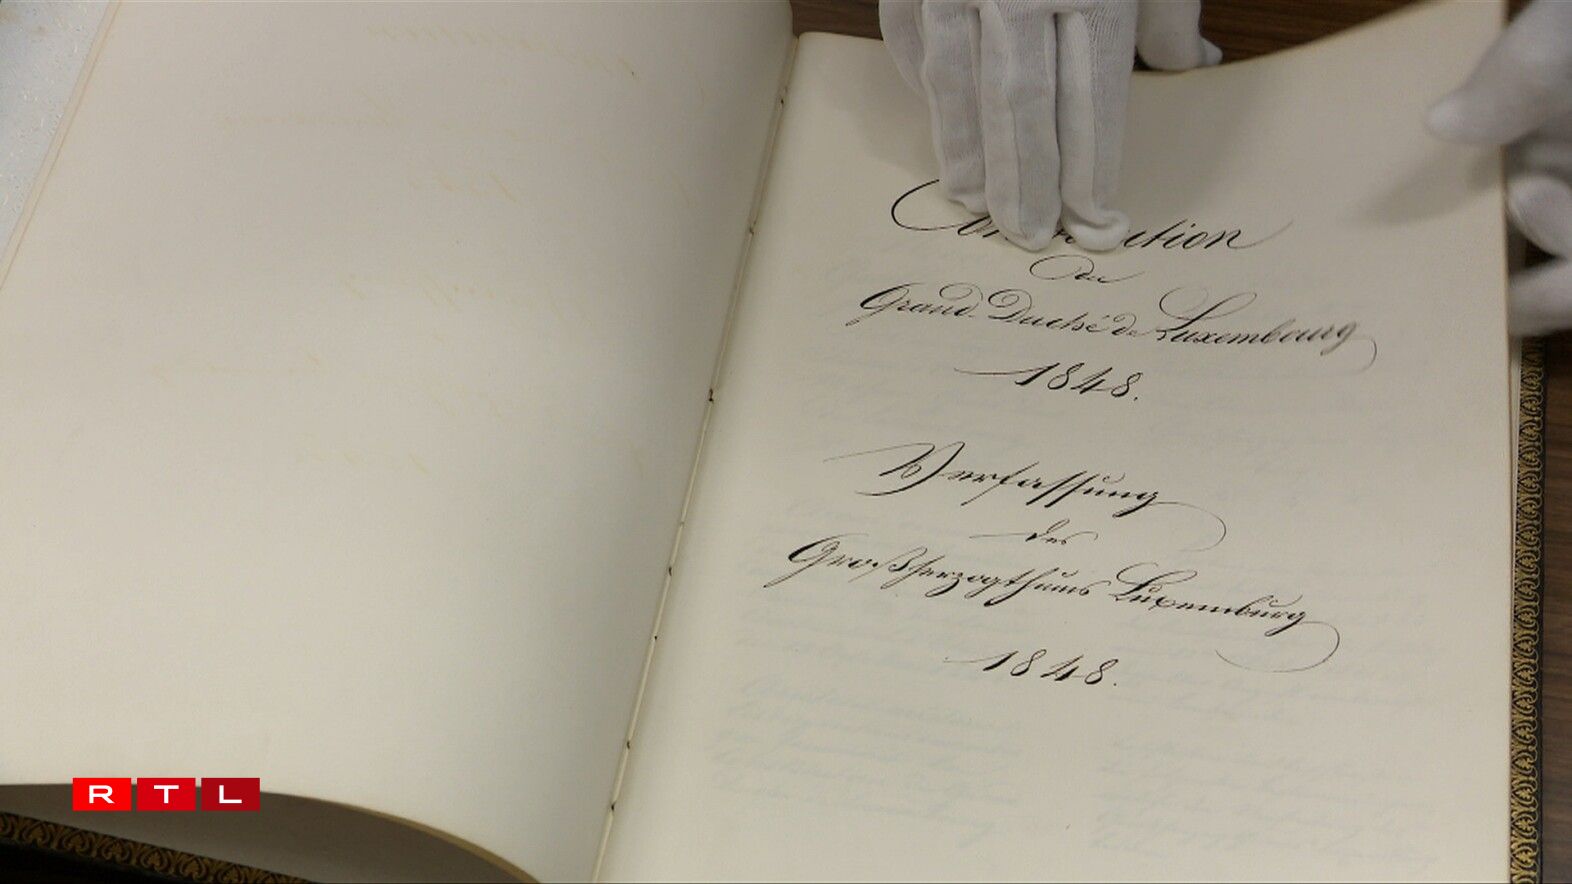 Constitution
du
Grand-Duché de Luxembourg
1848.
Verfassung
des
Großherzogthums Luxemburg
1848.
RTL